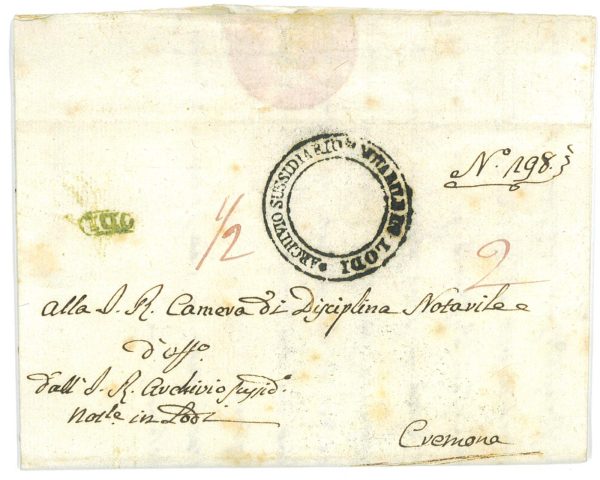 Nº 198.
ARCHIVIO SUSSIDIARIO NOTARILE IN LODI
LODI
1/2
2
Alla I. R. Camera di Disciplina Notarile
d'Offº
Dall' I. R. Archivio Sussidº
Notle in Lodi
Cremona